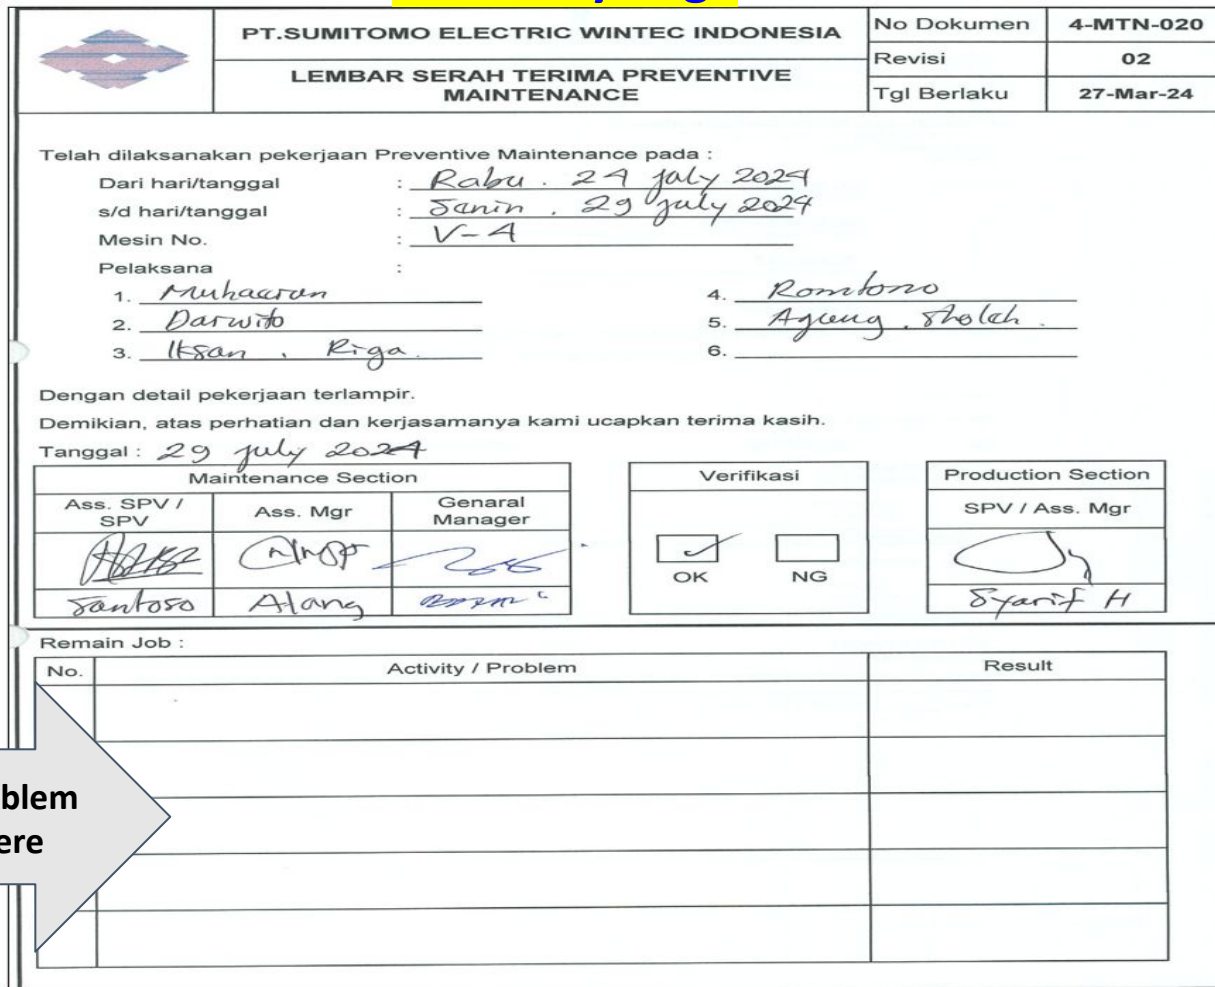 PT.SUMITOMO ELECTRIC WINTEC INDONESIA
LEMBAR SERAH TERIMA PREVENTIVE
MAINTENANCE
No Dokumen 4-MTN-020
Revisi 02
Tgl Berlaku 27-Mar-24
Telah dilaksanakan pekerjaan Preventive Maintenance pada :
Dari hari/tanggal : Rabu . 24 july 2024
s/d hari/tanggal : Senin . 29 july 2024
Mesin No. : V-4
Pelaksana :
1.
2. Darwito
3. Iksan . Riga.
4. Romtono
5. Agung . Sholeh .
6.
Dengan detail pekerjaan terlampir.
Demikian, atas perhatian dan kerjasamanya kami ucapkan terima kasih.
Tanggal : 29 july 2024
Maintenance Section
Ass. SPV /
SPV
Ass. Mgr
Genaral
Manager
Santoso Alang
Verifikasi
OK NG
Production Section
SPV / Ass. Mgr
Syarif H
Remain Job :
No. Activity / Problem Result
blem
ere